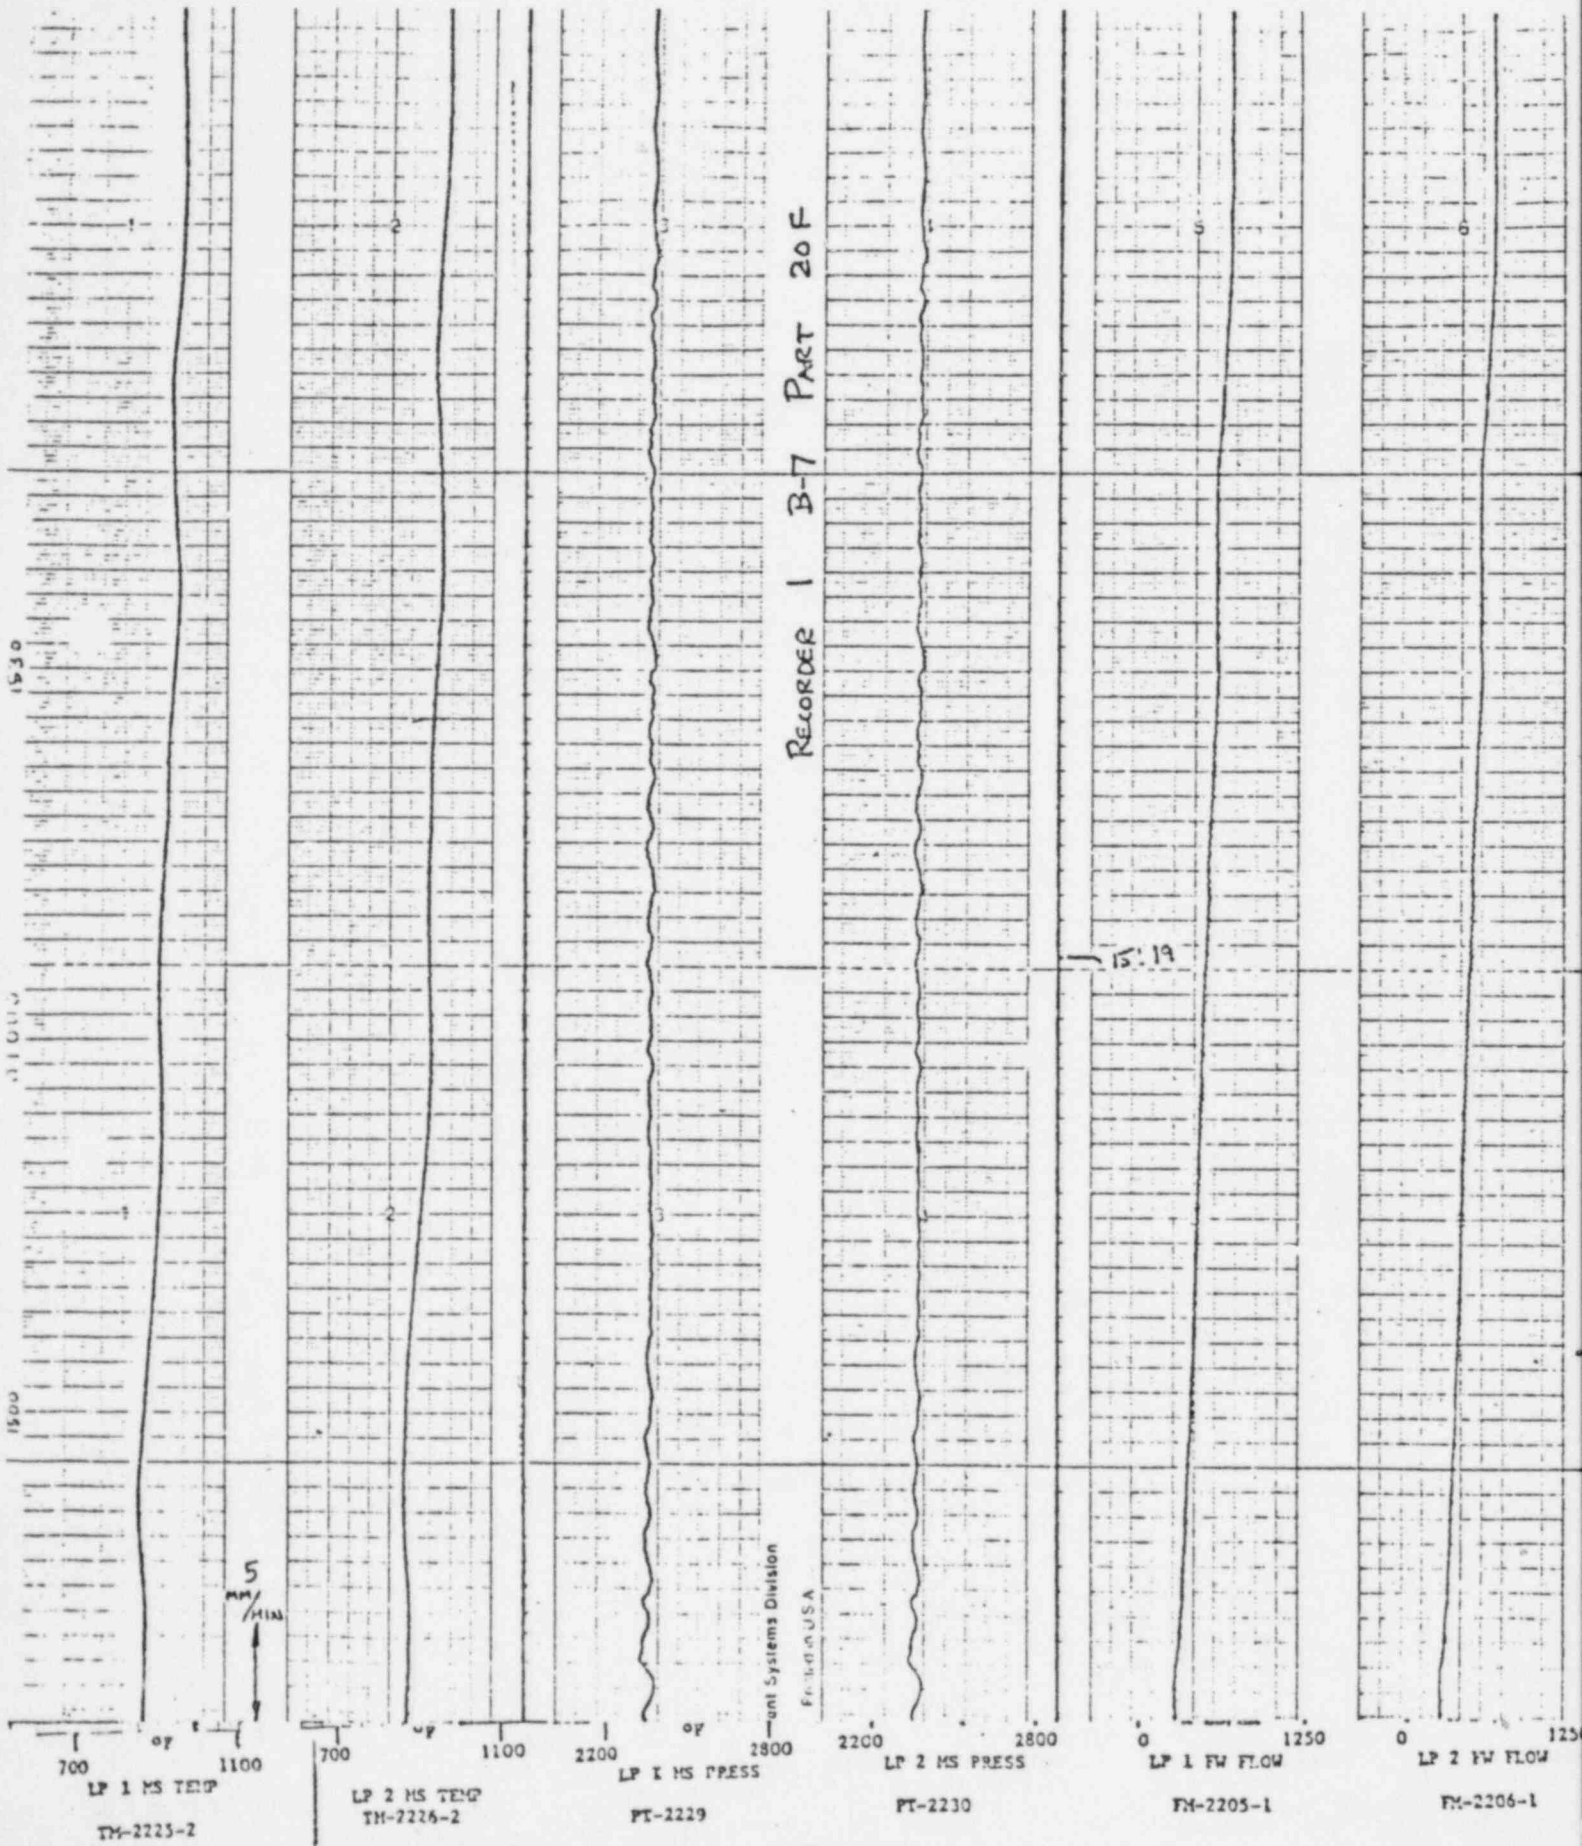 1 2 3 5 6
RECORDER 1 B-7 PART 2OF
1530
15:19
2 3
1500
5
MM/MIN
unt Systems Division
USA
700 °F 1100
LP 1 MS TEMP
TM-2225-2
700 °F 1100
LP 2 MS TEMP
TM-2226-2
2200 °F 2800
LP 1 MS PRESS
PT-2229
2200 2800
LP 2 MS PRESS
PT-2230
0 1250
LP 1 FW FLOW
FM-2205-1
0 125
LP 2 FW FLOW
FM-2206-1